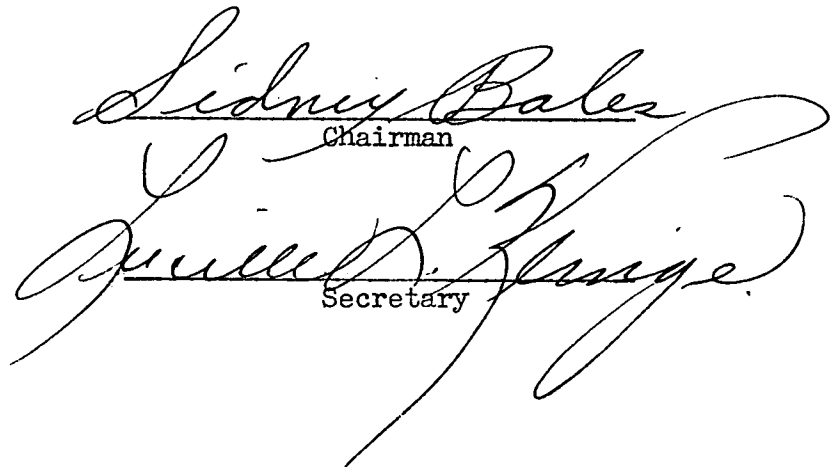 Sidney Bales
Chairman
Lucille L.
Secretary